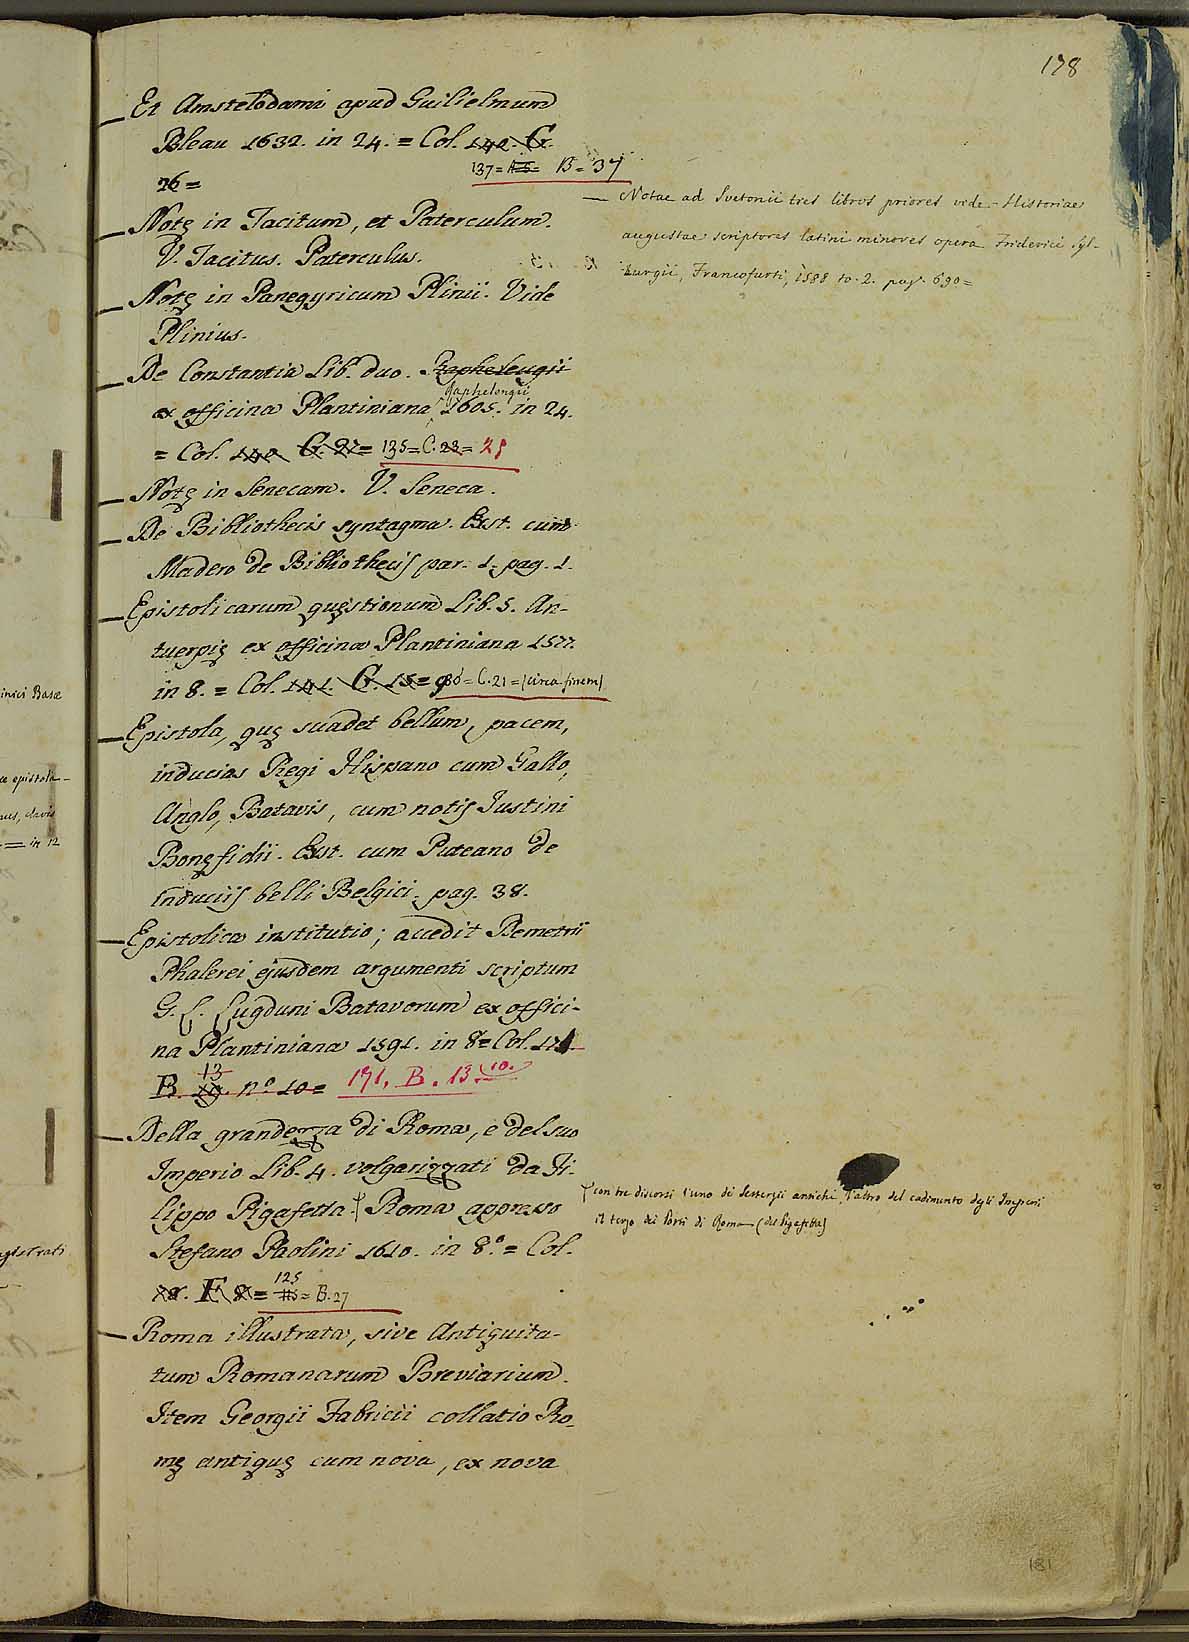 178
Et Amstelodami apud Guilielmum
Bleau 1632. in 24. = Col. 140. G.
26 = 137 = A=5= B = 37
Notę in Tacitum, et Paterculum.
V. Tacitus. Paterculus.
Notę in Panegyricum Plinii. Vide
Plinius.
De Constantia Lib. duo. Rapheleugii
ex officina Plantiniana Raphelongii 1605. in 24.
= Col. 140 G. 27 = 135 = C. 23 = 25
Notę in Senecam. V. Seneca.
De Bibliothecis syntagma. Exst. cum
Madero de Bibliothecis par. 1. pag. 1.
Epistolicarum quęstionum Lib. 5. An-
tuerpię ex officina Plantiniana 1577.
in 8. = Col. 141. G. 15 = 130 = C. 21 = (circa finem)
Epistola, quę suadet bellum, pacem,
inducias Regi Hispano cum Gallo,
Anglo, Batavis, cum notis Justini
Bonęfidii. Exst. cum Puteano de
induciis belli Belgici. pag. 38.
Epistolica institutio; accedit Demetrii
Phalerei ejusdem argumenti scriptum
G. L. Lugduni Batavorum ex offici-
na Plantiniana 1591. in 8 = Col. 171
B. 19. 13 nº 10 = 171. B. 13. 10.
Della grandezza di Roma, e del suo
Imperio Lib. 4. volgarizzati da Fi-
lippo Pigafetta. Roma appresso
Stefano Paolini 1610. in 8.º = Col.
F. 8 = 125 = B. 27
Roma illustrata, sive Antiquita-
tum Romanarum Breviarium.
Item Georgii Fabricii collatio Ro-
mę antiquę cum nova, ex nova
Notae ad Svetonii tres libros priores vide Historiae
augustae scriptores latini minores opera Friderici Syl-
burgii, Francofurti, 1588 to. 2. pag. 690 =
con tre discorsi l'uno di Sesterzii antichi, l'altro del cadimento degli Imperi
il terzo dei Porti di Roma (del Pigafetta)
inici Basae
epistola
in 12
181